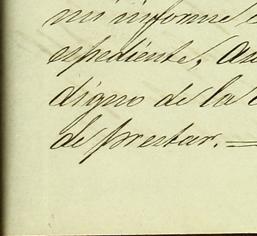 mi informe
expediente,
digno de la
de prestar.